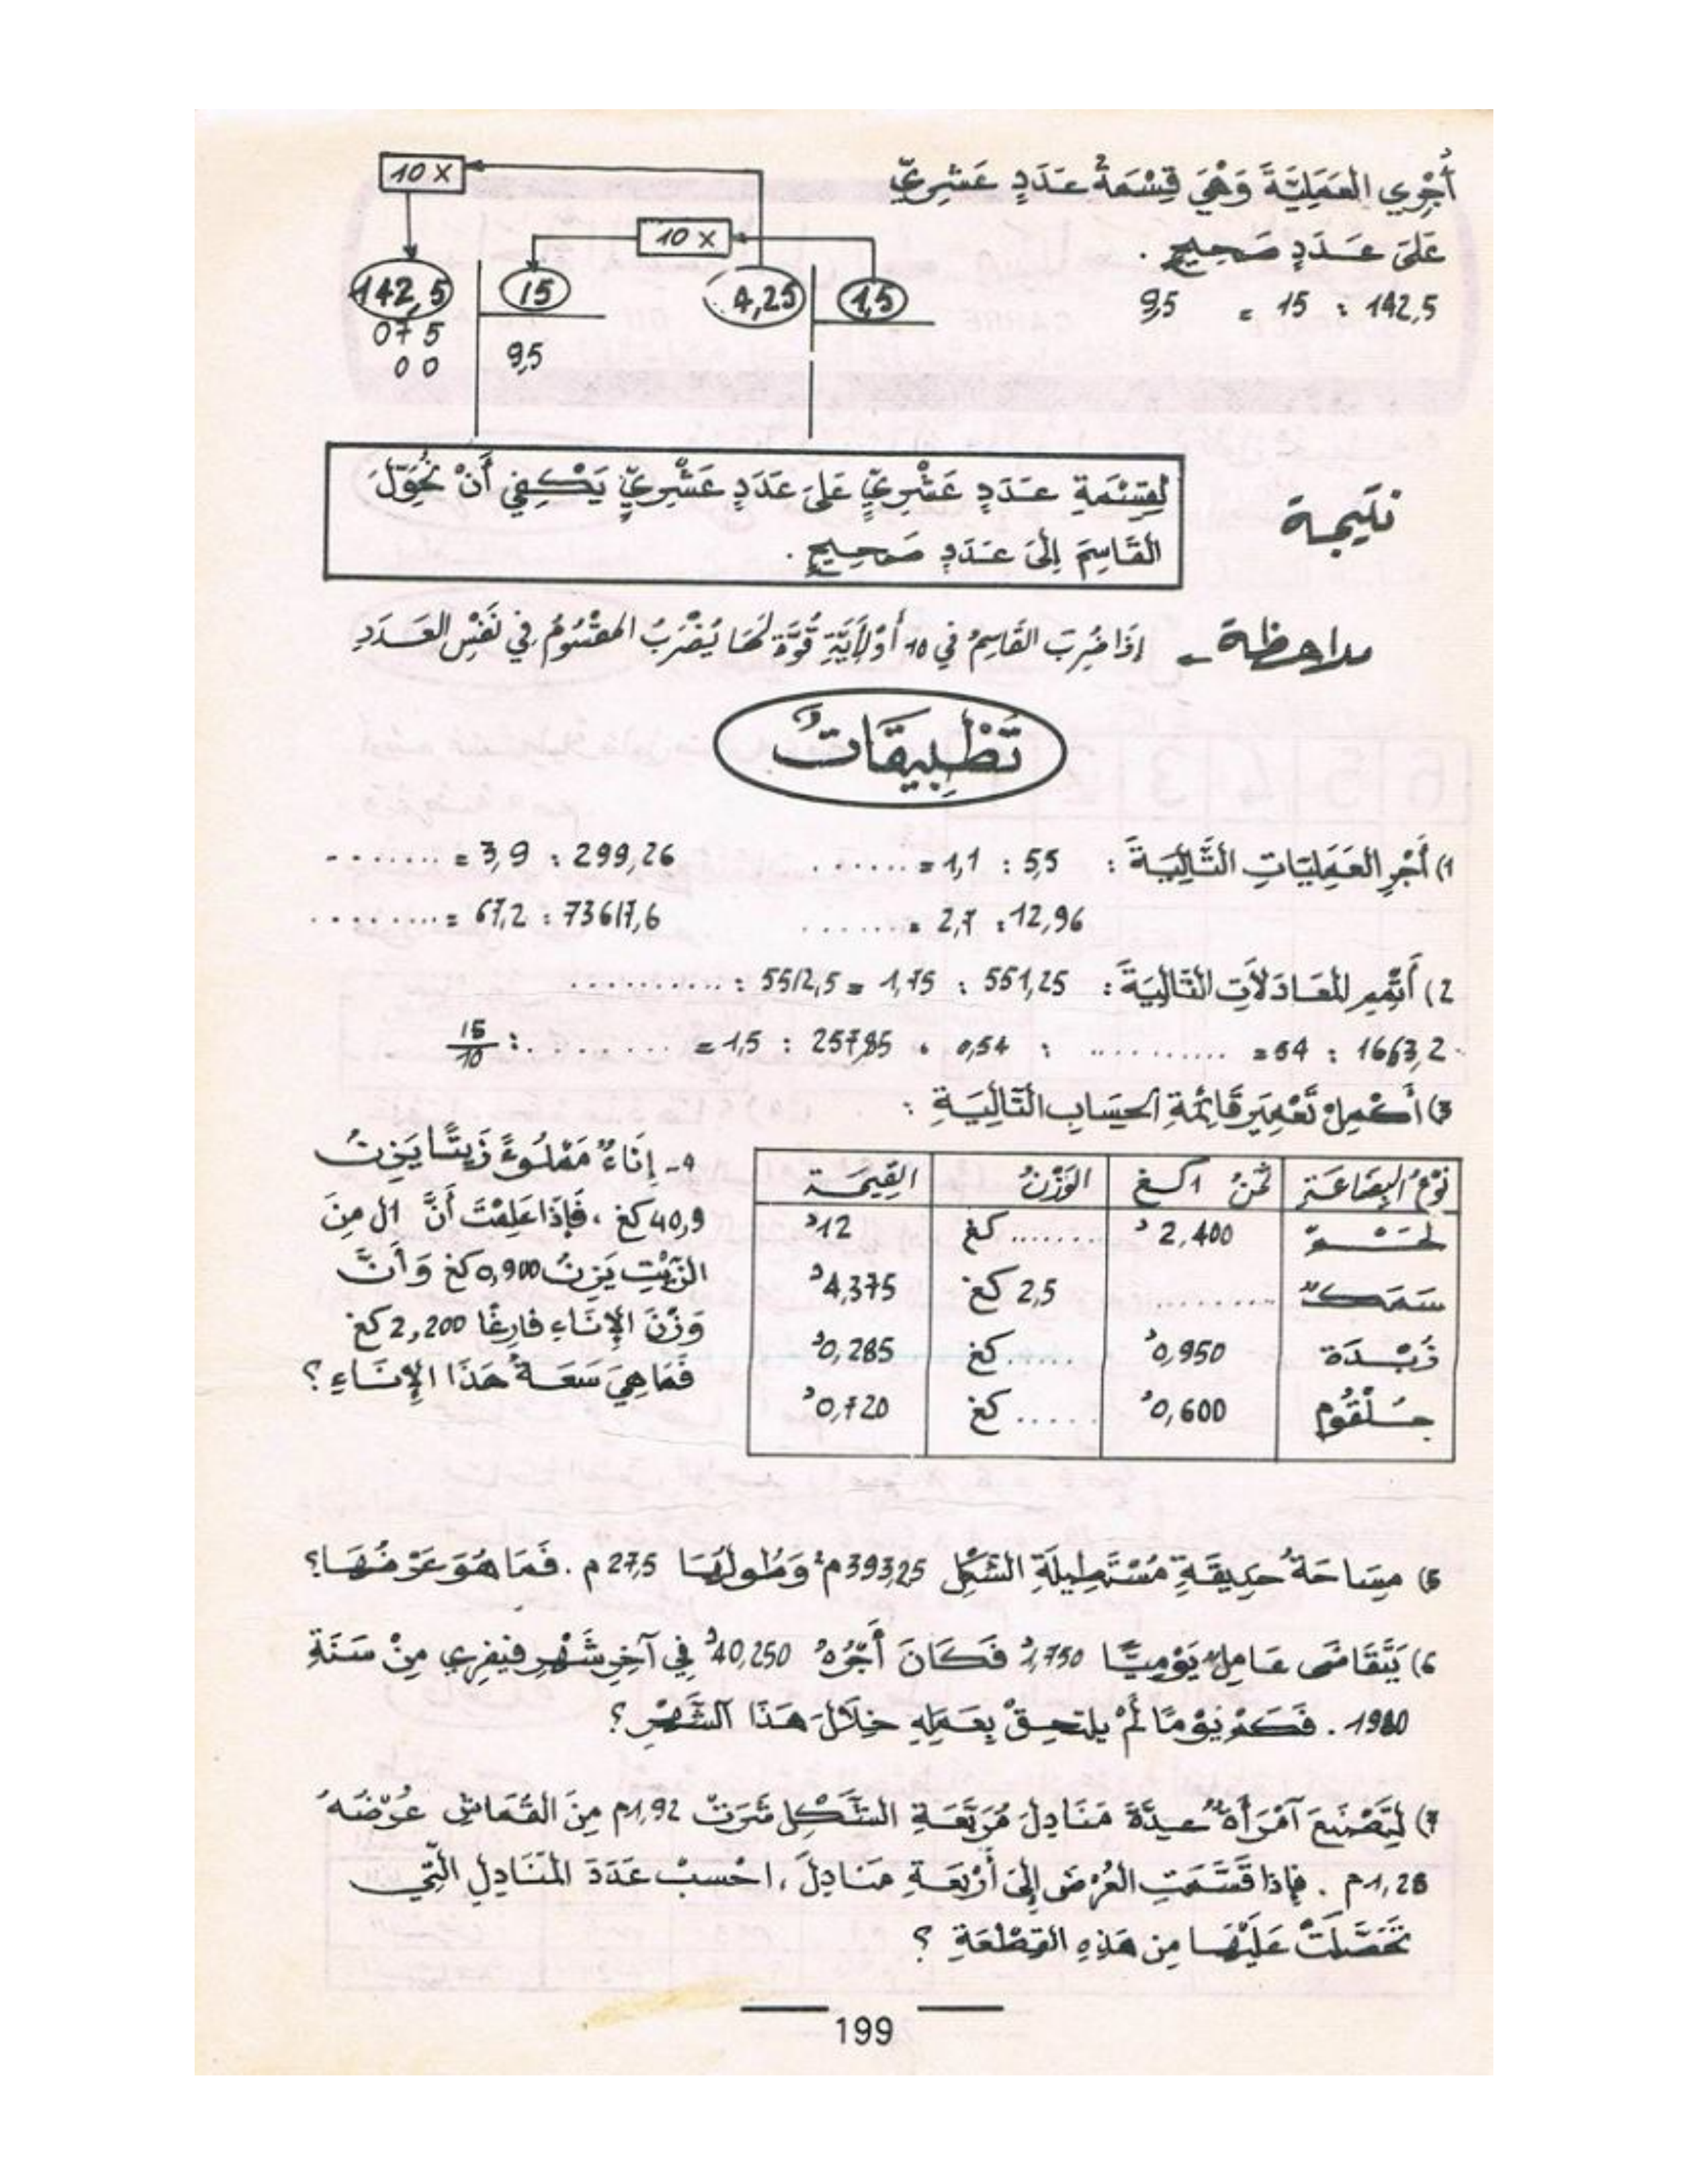 أُجْرِي العَمَلِيَّةَ وَهْيَ قِسْمَةُ عَدَدٍ عَشْرِيٍّ
عَلَى عَدَدٍ صَحِيحٍ .
142,5 : 15 = 9,5
10 x
10 x
142,5 15 4,25 1,5
075
00 9,5
نتيجة
لِقِسْمَةِ عَدَدٍ عَشْرِيٍّ عَلَى عَدَدٍ عَشْرِيٍّ يَكْفِي أَنْ نُحَوِّلَ
القَاسِمَ إِلَى عَدَدٍ صَحِيحٍ .
ملاحظة - إذَا ضُرِبَ القَاسِمُ في 10 أَوْ لِأَيَّةِ قُوَّةٍ لَهَا يُضْرَبُ المقْسُومُ في نَفْسِ العَدَدِ
تَطْبِيقَاتٌ
1) أَجْرِ العَمَلِيَاتِ التَّالِيَةَ : 5,5 : 1,1 = ....... 299,26 : 3,9 = .......
12,96 : 2,7 = ....... 73617,6 : 67,2 = ........
2) أَتْمِمِ المُعَادَلَاتِ التَّالِيَةَ : 551,25 : 1,75 = 5512,5 : ..........
1663,2 : 54 = .......... : 0,54 ، 257,85 : 1,5 = ........ : 15/10
3) أَكْمِلْ تَعْمِيرَ قَائِمَةِ الحِسَابِ التَّالِيَةِ :
نَوْعُ البِضَاعَةِ ثَمَنُ 1 كغ الوَزْنُ القِيمَة
لَحْم 2,400د ....... كغ 12د
سَمَكٌ ......... 2,5 كغ 4,375د
زُبْدَة 0,950د ...... كغ 0,285د
حَلْقُوم 0,600د ..... كغ 0,720د
4- إِنَاءٌ مَمْلُوءٌ زَيْتًا يَزِنُ
40,9 كغ ، فَإِذَا عَلِمْتَ أَنَّ 1ل مِنَ
الزَّيْتِ يَزِنُ 0,900 كغ وَأَنَّ
وَزْنَ الإِنَاءِ فَارِغًا 2,200 كغ
فَمَا هِيَ سَعَةُ هَذَا الإِنَاءِ ؟
5) مِسَاحَةُ حَدِيقَةٍ مُسْتَطِيلَةِ الشَّكْلِ 393,25 م² وَطُولُهَا 27,5 م . فَمَا هُوَ عَرْضُهَا ؟
6) يَتَقَاضَى عَامِلٌ يَوْمِيًّا 1,750د فَكَانَ أَجْرُهُ 40,250د فِي آخِرِ شَهْرِ فِيفْرِي مِنْ سَنَةِ
1980 . فَكَمْ يَوْمًا لَمْ يلتحِقْ بِعَمَلِهِ خِلَالَ هَذَا الشَّهْرِ ؟
7) لِتَصْنَعَ امْرَأَةٌ عِدَّةَ مَنَادِلَ مُرَبَّعَةِ الشَّكْلِ شَرَتْ 1,92م مِنَ القُمَاشِ عُرْضُهُ
1,28م . فَإِذَا قَسَّمَتِ العُرْضَ إِلَى أَرْبَعَةِ مَنَادِلَ ، احْسُبْ عَدَدَ المَنَادِلِ الَّتِي
تَحَصَّلَتْ عَلَيْهَا مِن هَذِهِ القِطْعَةِ ؟
199